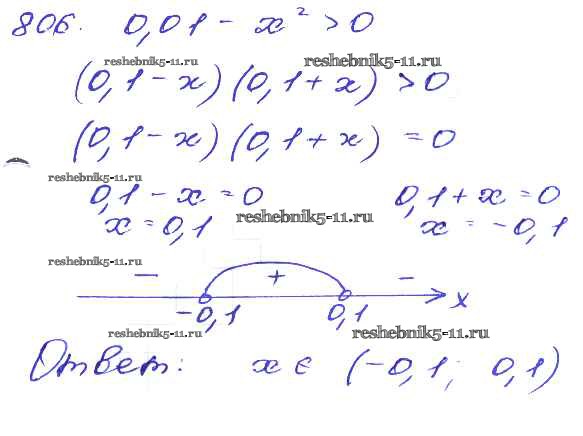 806. 0,01 - x² > 0
reshebnik5-11.ru reshebnik5-11.ru
(0,1 - x) (0,1 + x) > 0
(0,1 - x) (0,1 + x) = 0
reshebnik5-11.ru
0,1 - x = 0 0,1 + x = 0
x = 0,1 reshebnik5-11.ru x = -0,1
reshebnik5-11.ru
- + -
-0,1 0,1 x
reshebnik5-11.ru reshebnik5-11.ru
Ответ: x ∈ (-0,1; 0,1)